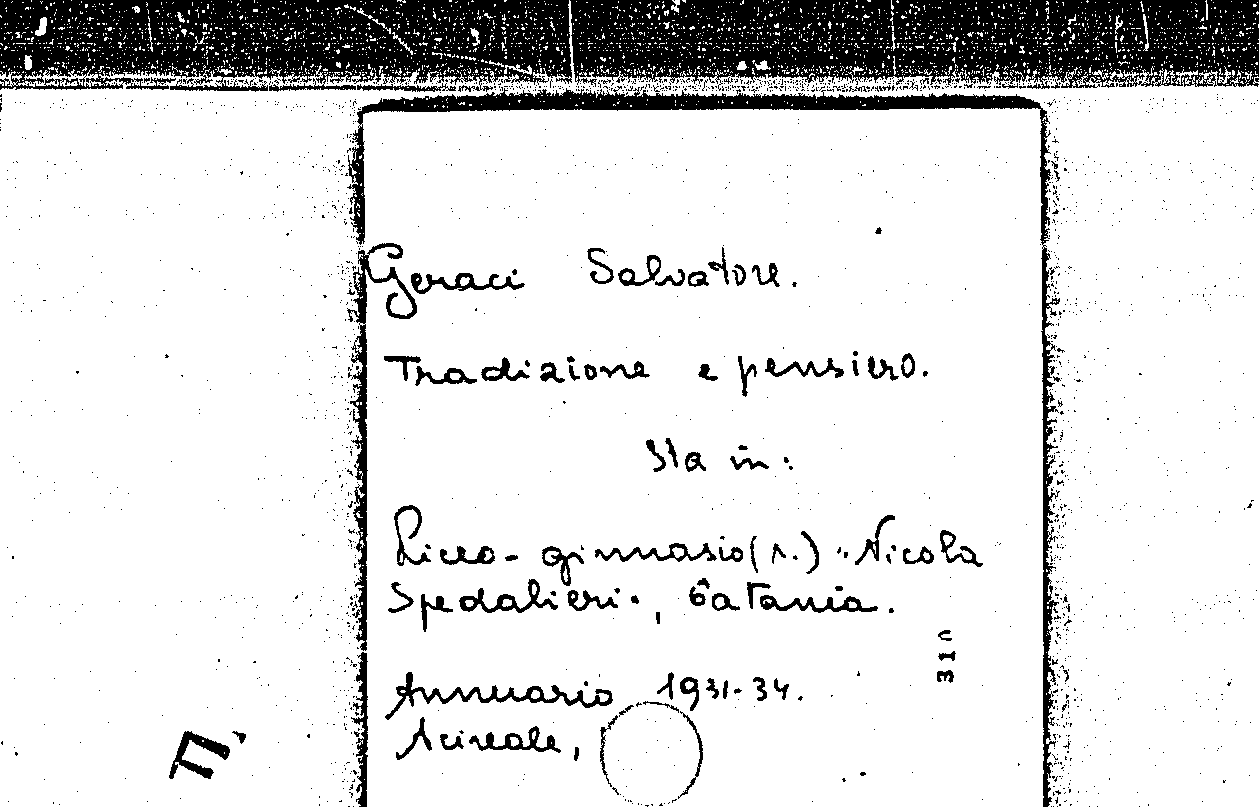 Geraci Salvatore.
Tradizione e pensiero.
Sta in:
Liceo-ginnasio (r.) "Nicola
Spedalieri", Catania.
310
Annuario 1931-34.
Acireale,